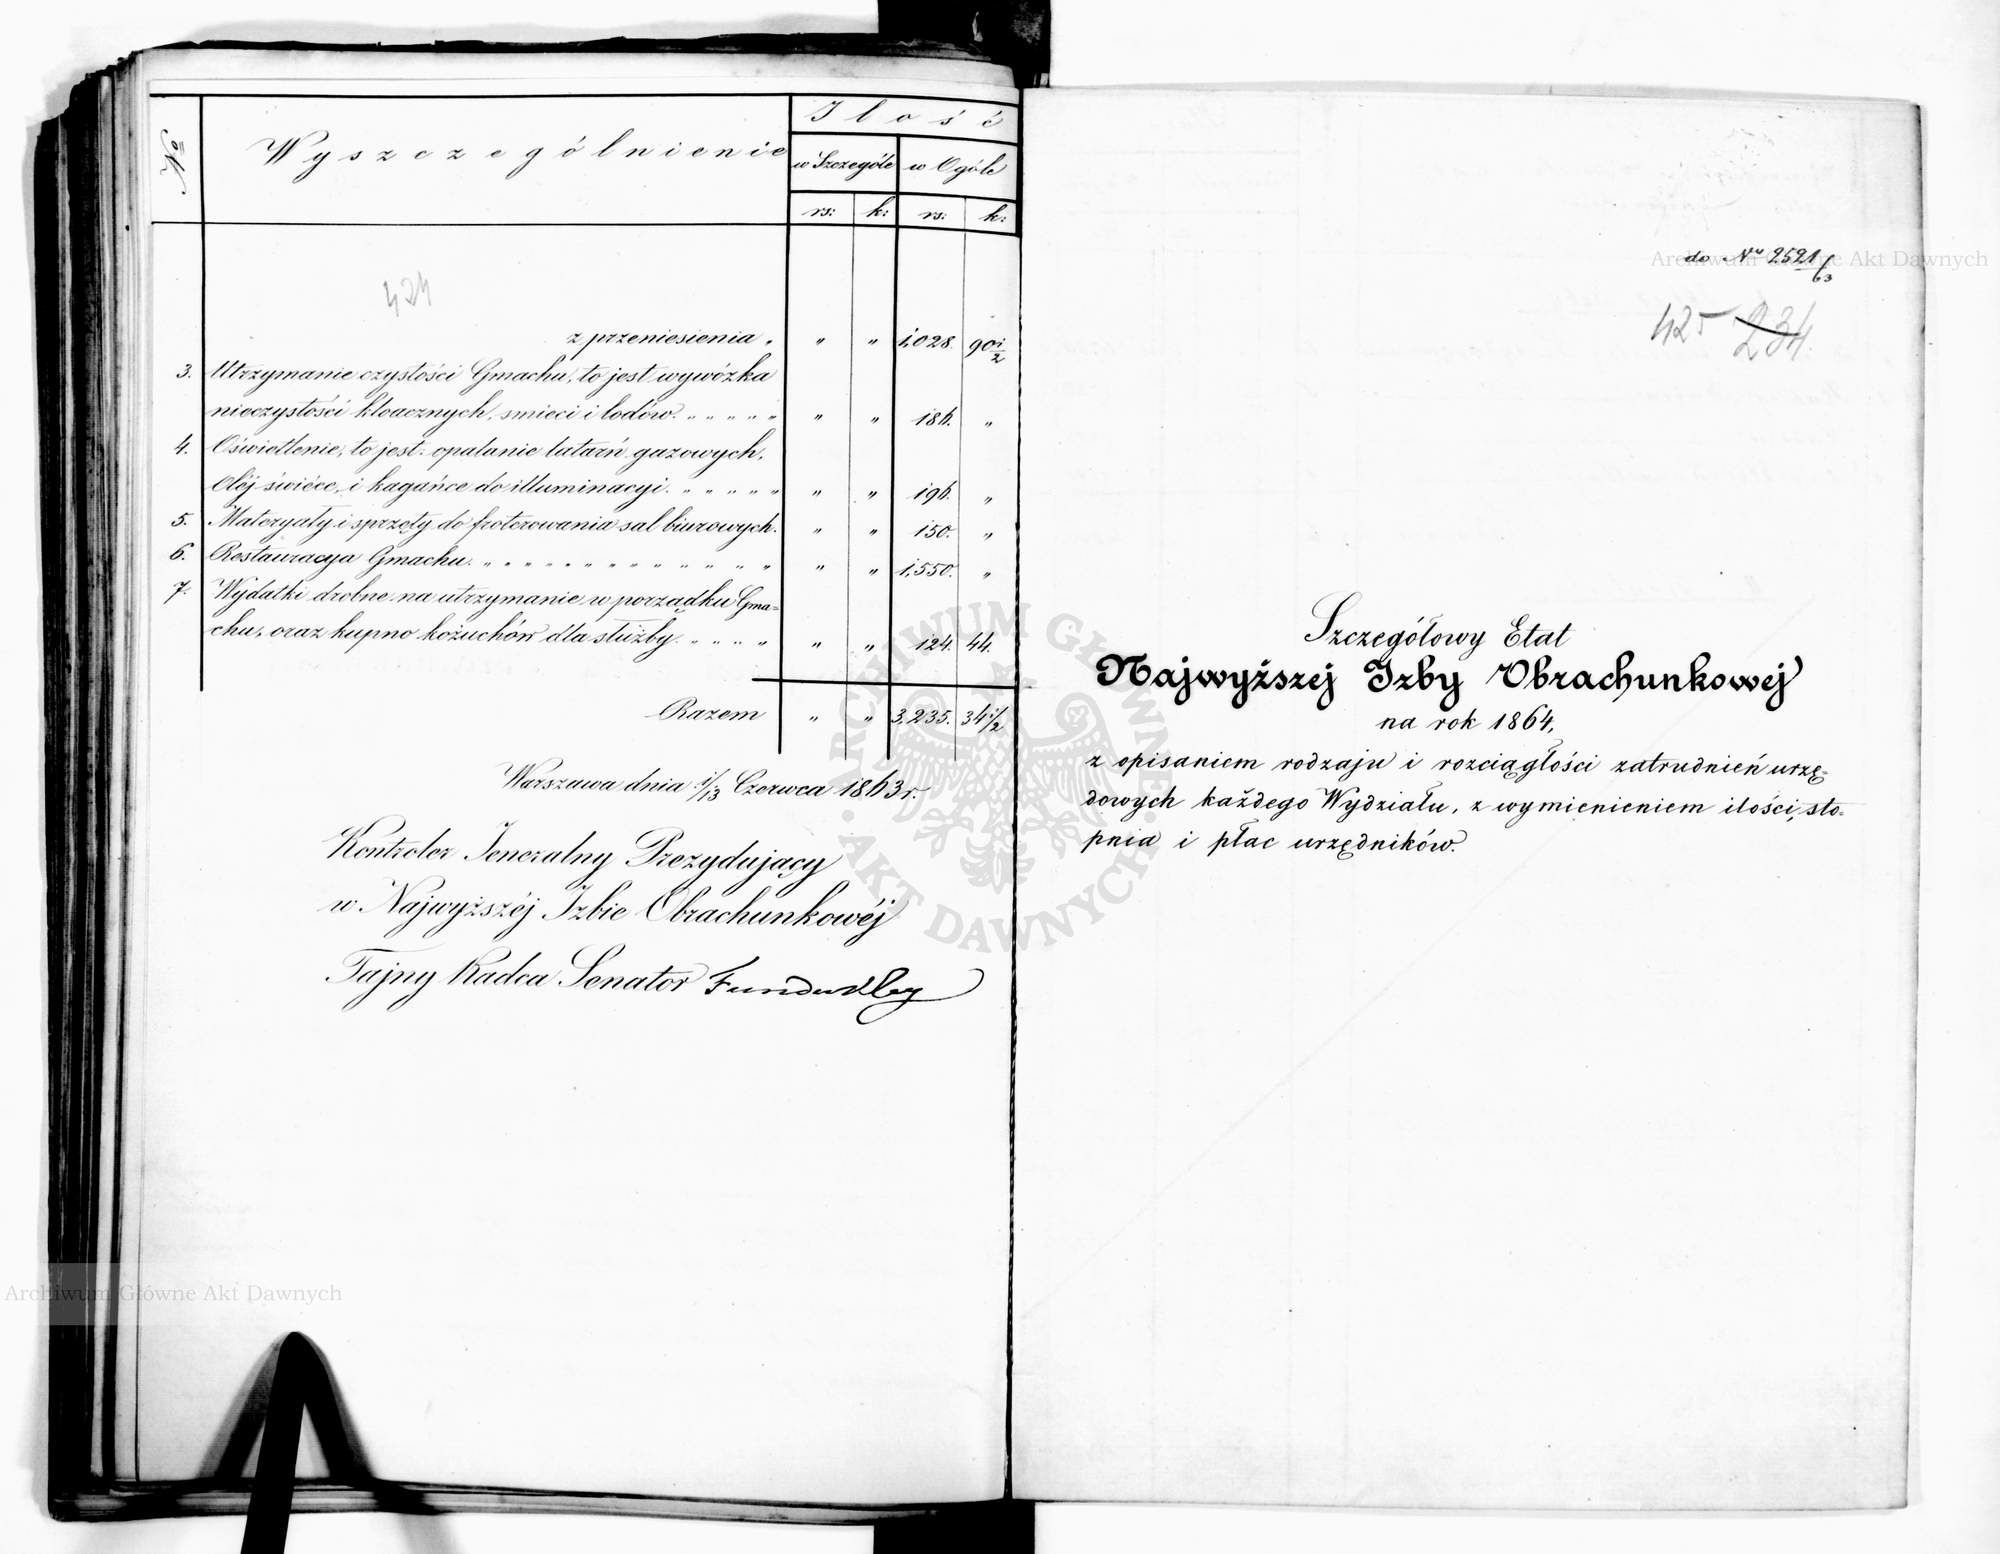 № Wyszczególnienie Ilość
w Szczególe w Ogóle
rs: k: rs: k:
424
z przeniesienia „ „ „ 1,028. 90 1/2
3. Utrzymanie czystości Gmachu, to jest wywózka
nieczystości kloacznych, smieci i lodów. „ „ „ „ „ „ „ 186. „
4. Oświetlenie, to jest: opalanie latarń gazowych,
oléj świéce, i kagańce do illuminacyi. „ „ „ „ „ „ „ 196. „
5. Materyały i sprzęty do froterowania sal biurowych. „ „ 150. „
6. Restauracya Gmachu. „ „ „ „ „ „ „ „ „ „ „ „ „ „ „ 1,550. „
7. Wydatki drobne na utrzymanie w porządku Gma=
chu, oraz kupno kożuchów dla służby. „ „ „ „ „ „ 124. 44.
Razem „ „ 3,235. 34 1/2
Warszawa dnia 1/13 Czerwca 1863 r.
Kontroler Jeneralny Prezydujący
w Najwyższéj Izbie Obrachunkowéj
Tajny Radca Senator Fundukley
do Nu 2521/63
425 234.
Szczegółowy Etat
Najwyższej Izby Obrachunkowej
na rok 1864,
z opisaniem rodzaju i rozciągłości zatrudnień urzę-
dowych każdego Wydziału, z wymienieniem ilości, sto-
pnia i płac urzędników.
ARCHIWUM GŁÓWNE AKT DAWNYCH
Archiwum Główne Akt Dawnych
Archiwum Główne Akt Dawnych